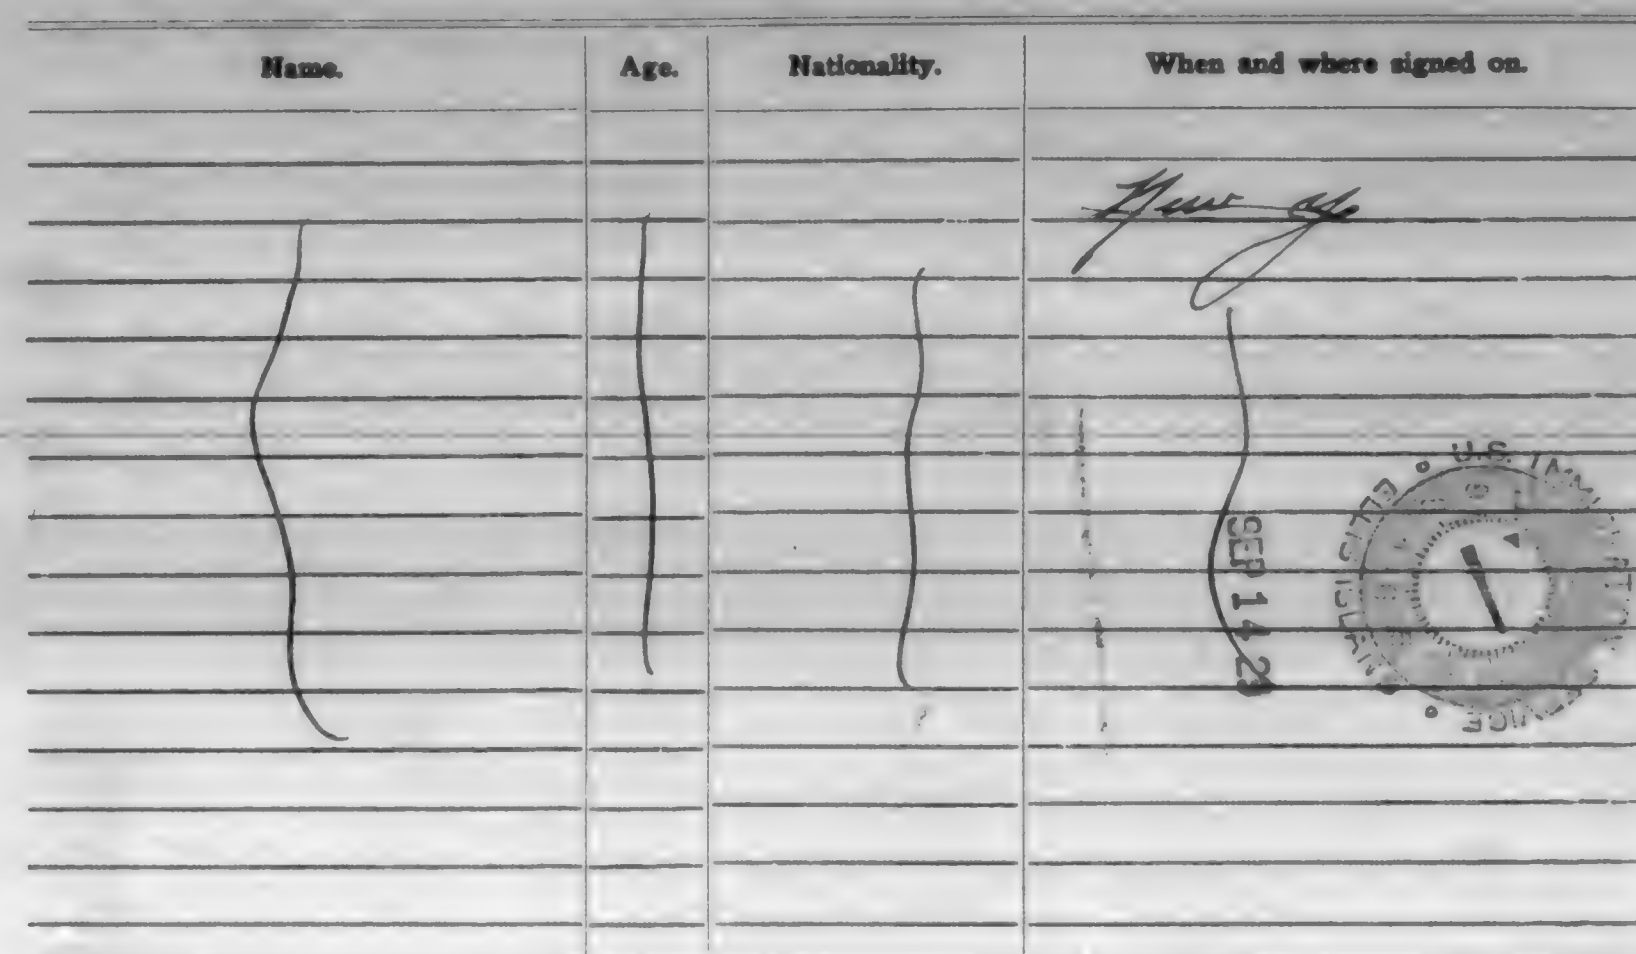 Name. Age. Nationality. When and where signed on.
New York
SEP 14 23
U.S. IMMIGRATION SERVICE
ELLIS ISLAND